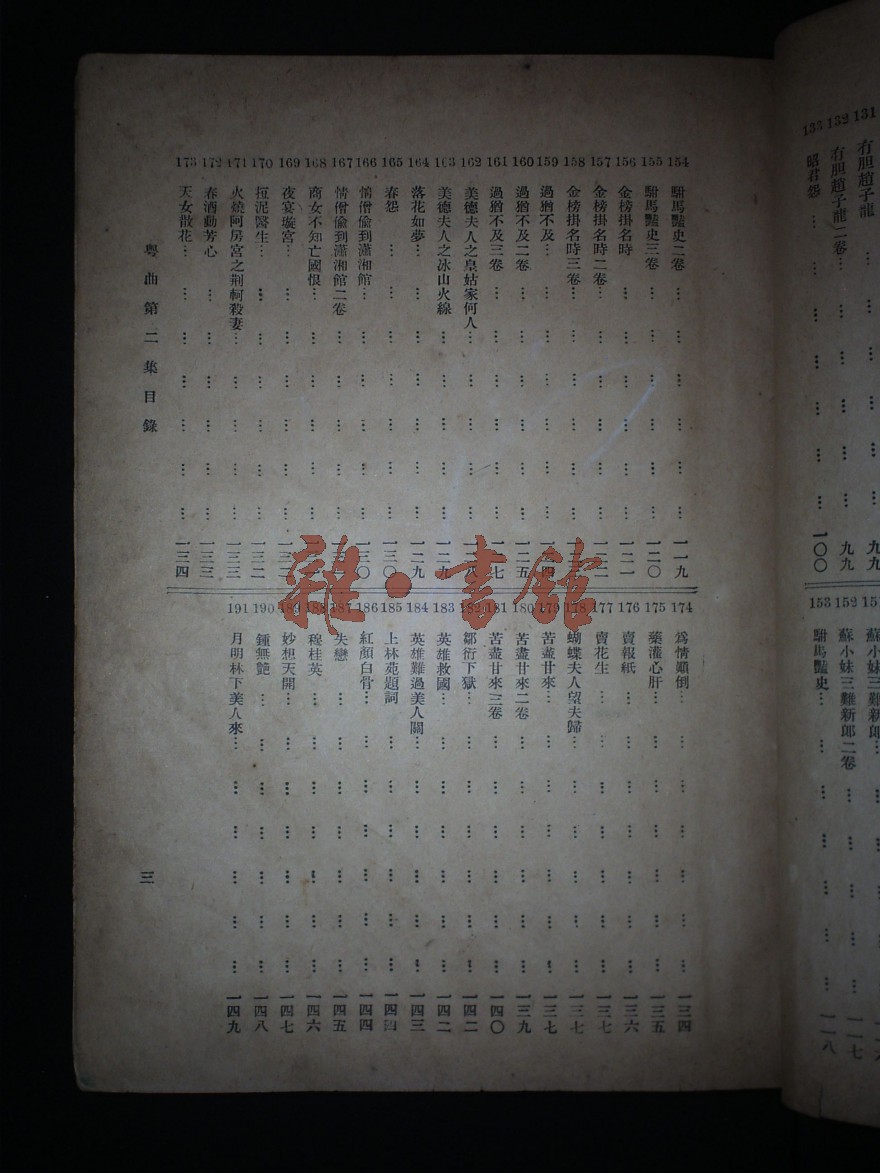 131 冇胆趙子龍
132 冇胆趙子龍二卷 九九
133 昭君怨 一〇〇
蘇小妹三難新郎
152 蘇小妹三難新郎二卷 一一七
153 駙馬豔史 一一八
154 駙馬豔史二卷 一一九
155 駙馬豔史三卷 一二〇
156 金榜掛名時 一二一
157 金榜掛名時二卷
158 金榜掛名時三卷
159 過猶不及
160 過猶不及二卷 一二五
161 過猶不及三卷
162 美德夫人之皇姑家何人
163 美德夫人之冰山火線 一二九
164 落花如夢 一二九
165 春怨 一三〇
166 情僧偷到瀟湘館 一三〇
167 情僧偷到瀟湘館二卷
168 商女不知亡國恨
169 夜宴璇宮
170 拉泥醫生 一三二
171 火燒阿房宮之荆軻殺妻 一三三
172 春酒動芳心 一三三
173 天女散花 一三四
174 爲情顚倒 一三四
175 藥灌心肝 一三五
176 賣報紙 一三六
177 賣花生 一三七
178 蝴蝶夫人望夫歸 一三七
179 苦盡甘來 一三七
180 苦盡甘來二卷 一三九
181 苦盡甘來三卷 一四〇
182 鄒衍下獄 一四二
183 英雄救國 一四二
184 英雄難過美人關 一四三
185 上林苑題詞 一四四
186 紅顏白骨 一四四
187 失戀 一四五
188 穆桂英 一四六
189 妙想天開 一四七
190 鍾無艷 一四八
191 月明林下美人來 一四九
粤曲第二集目錄
三
雜·書館